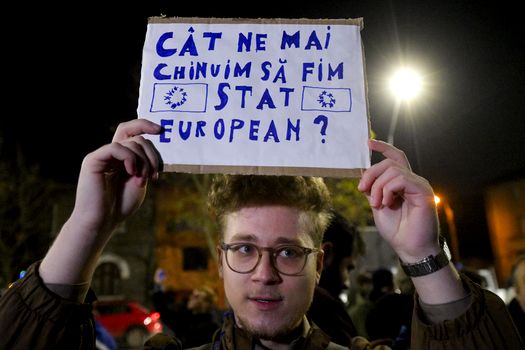 CÂT NE MAI
CHINUIM SĂ FIM
STAT
EUROPEAN?